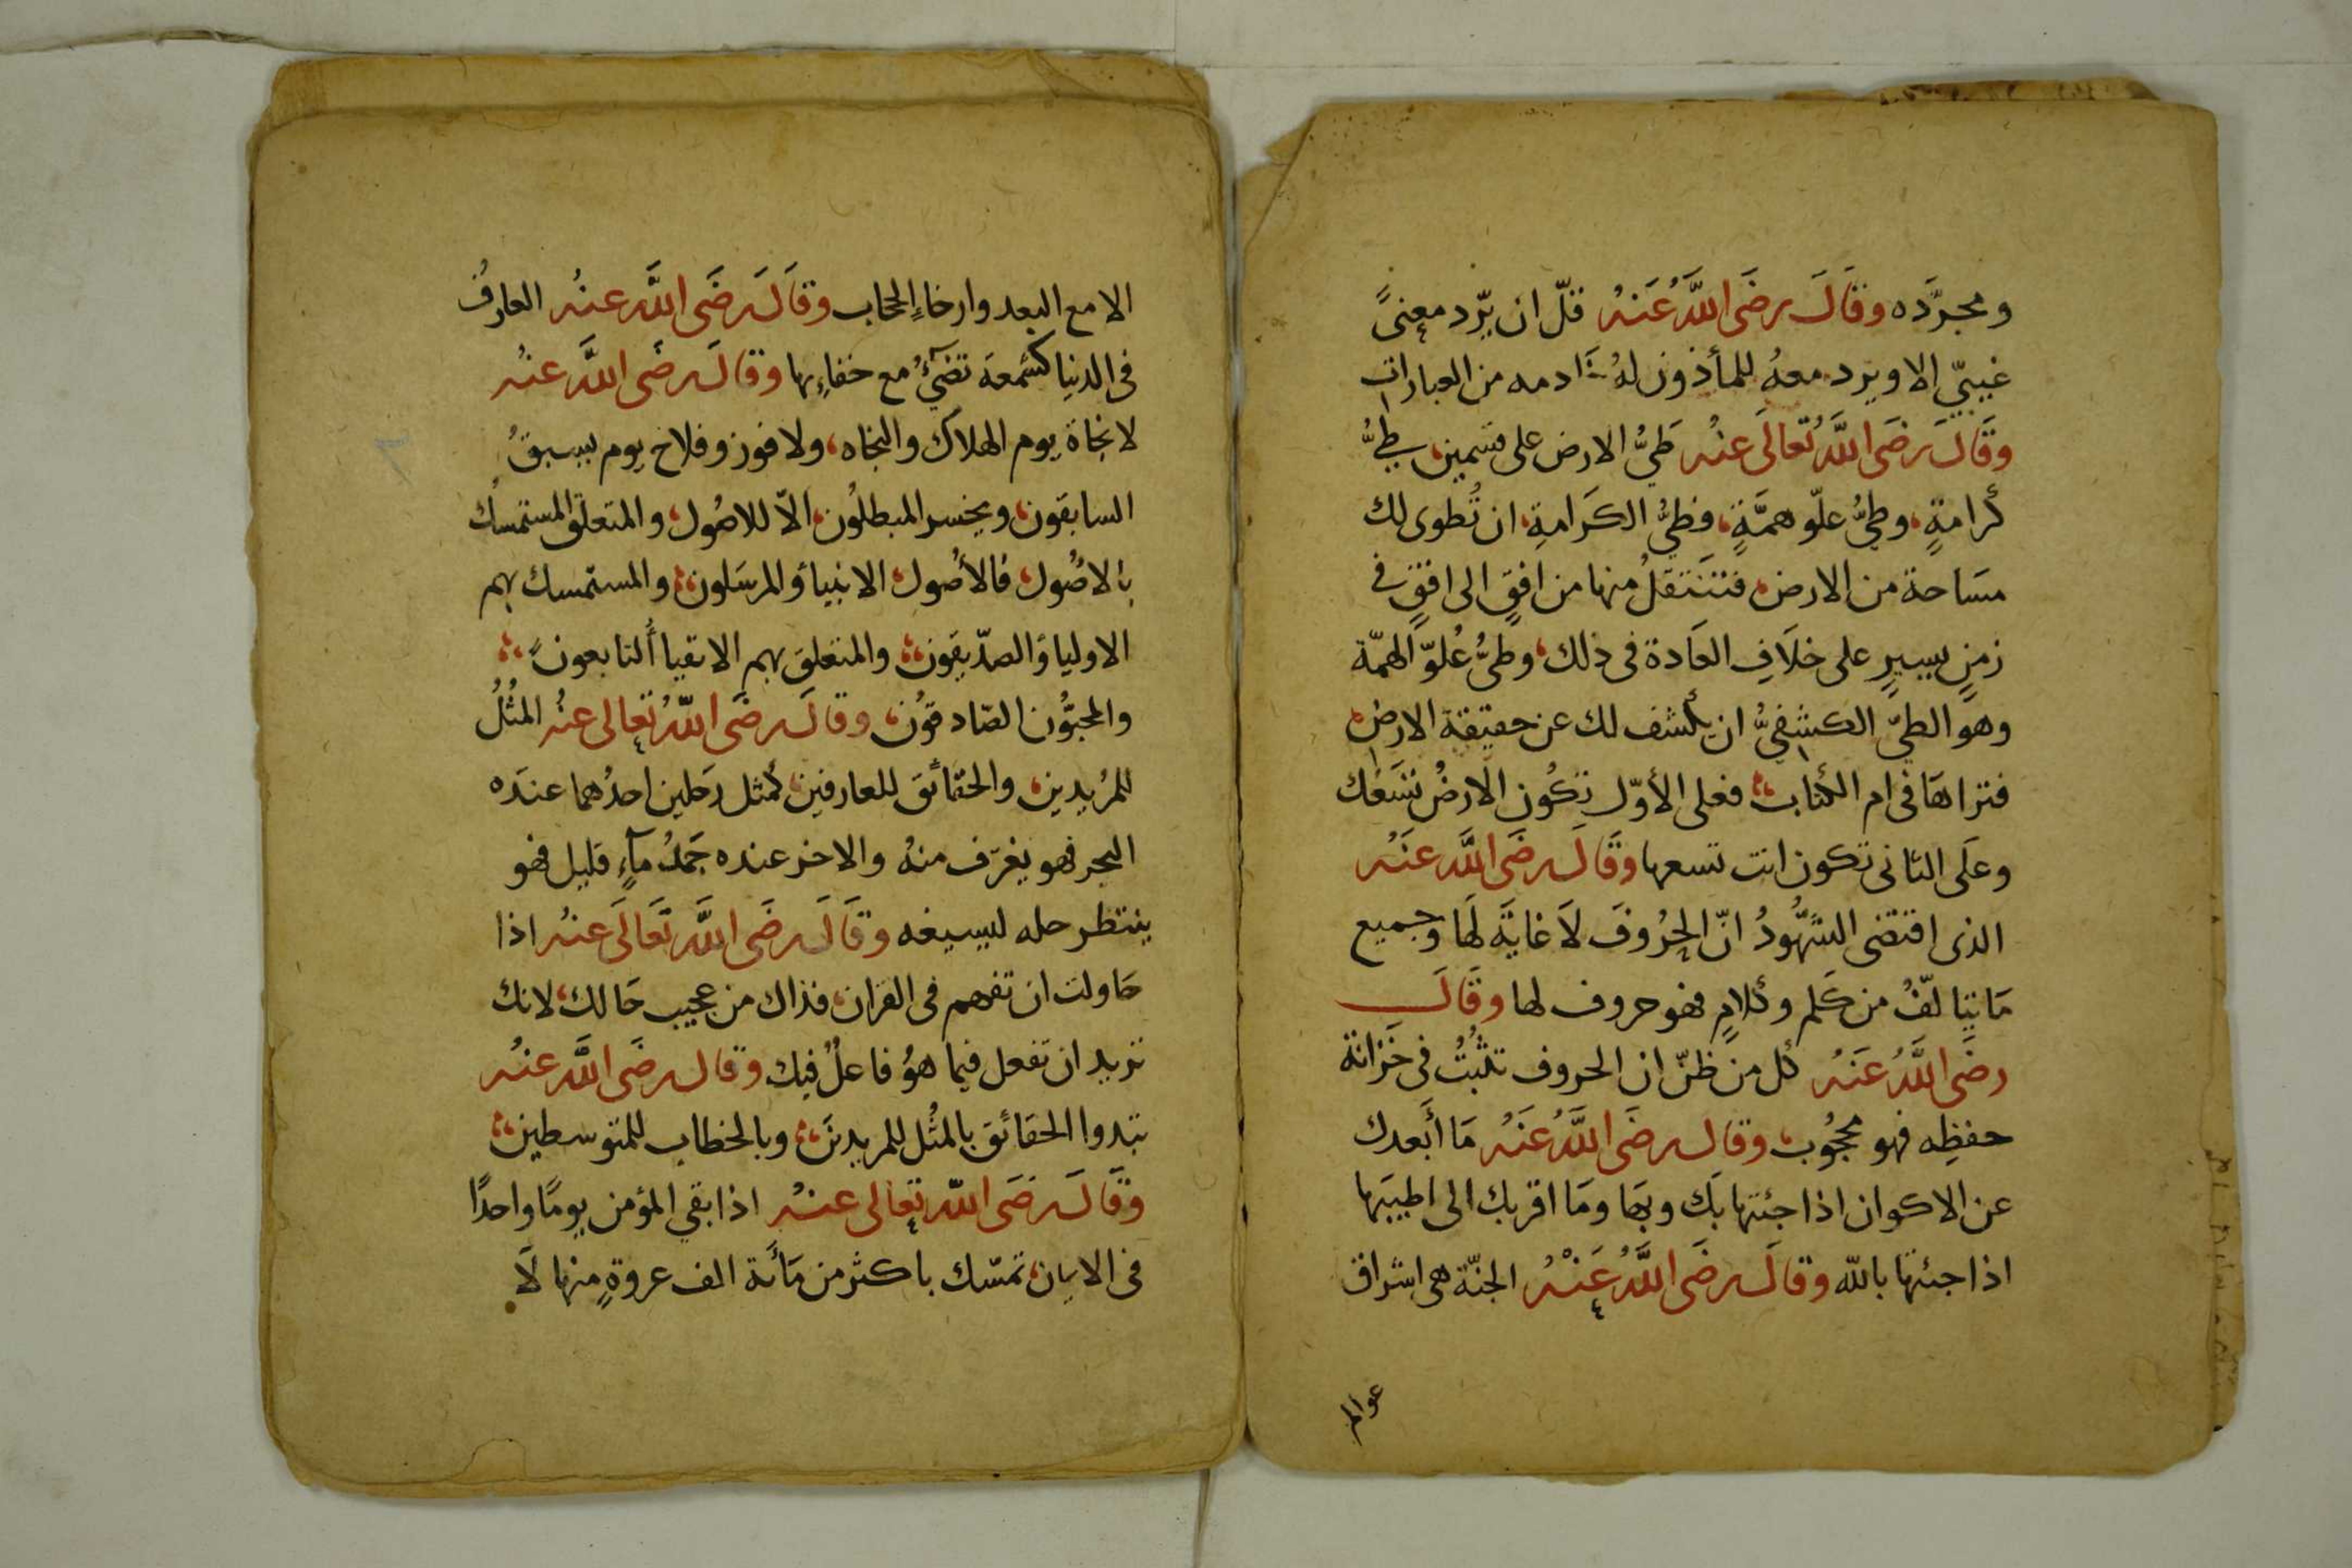 ومجرَّده وقَالَ رضَى اللَّهُ عَنهُ قلّ ان يرّد معنىً
غيبيّ الا ويرد معهُ للمأذون لهُ خادمه من العبارات
وقَالَ رضَى اللَّهُ تعَالَى عنْه طَيُّ الارض على قسمين، طيُّ
كرامةٍ، وطيُّ علّو همَّةٍ، فطيُّ الكَرامةِ، ان تُطوى لك
مسَاحة من الارض، فتنتقلُ منها من افقٍ الى افقٍ فى
زمنٍ يسيرٍ على خلاَفِ العَادة فى ذلك، وطيُّ عُلوّ الهمّة
وهو الطيّ الكشفيُّ ان يكشف لك عن حقيقة الارض،
فتراهَا فى ام الكتاب، فعلى الأوّل تكُون الارضُ تسَعُك
وعلَى الثانى تكون انت تسعها وقَالَ رضَى اللَّه عنَهُ
الذى اقتضى الشهُّودُ انّ الحرُوفَ لاَ غايَة لهَا وجميع
مَا يتالفّ من كَلم وكلامٍ فهو حروف لها وقَالَ
رضَى اللَّهُ عَنَهُ كل من ظنّ ان الحروف تثبُتُ فى خَزانة
حفظِه فهو محجُوب، وقال رضَى اللَّهُ عَنَهُ مَا أَبعدك
عن الاكوان اذا جئتها بَك وبهَا ومَا اقربك الى اطيبَها
اذا جئتها باللّه وقالَ رضَى اللَّهُ عَنْهُ الجنّة هى اشراق
عوالم
الا مع البعد وارخاءِ الحجاب وقَالَ رضَى اللَّه عنهُ العارفُ
فى الدنيا كشمعة تضيٓءُ مع خفاءِها وقالَ رضَى اللَّه عنهُ
لا نجاة يوم الهلاك والنجاه، ولا فوز وفلاح يوم يسبقُ
السابقون، ويخسر المبطلُون، الاّ للاصُول، والمتعلق المستمسك
بالاصُول، فالأصُول الانبياؤ المرسَلون، والمستمسك بهم
الاولياؤ الصدّيقون، والمتعلق بهم الاتقياأُ التابعونَ،
والمحبُّون الصّادقوُن، وقالَ رضَى اللّهُ تعالى عنهُ المثُلُ
للمُريدين، والحقائق للعارفين، كمثل رَجلين احدُهما عندَه
البحر فهو يغرَف منهُ والاخر عنده جَمدُ مآءٍ قليل فهو
ينتظر حله ليسيغه وقَالَ رضَى اللَّه تَعَالَى عنهُ اذا
حَاولت ان تفهم فى القران، فذاك من عجيب حَالك، لانك
تريد ان تفعل فيما هوُ فاعلٌ فيك وقال رضَى اللَّه عنهُ
تبدوا الحقائق بالمثُل للمريدينَ، وبالخطاب للمتوسطين،
وقَالَ رضَى اللّه تعالى عنهُ اذا بقي المؤمن يومًا واحدًا
فى الايمان، تمسّك باكثر من مَأَئة الف عروةٍ منها لاَ